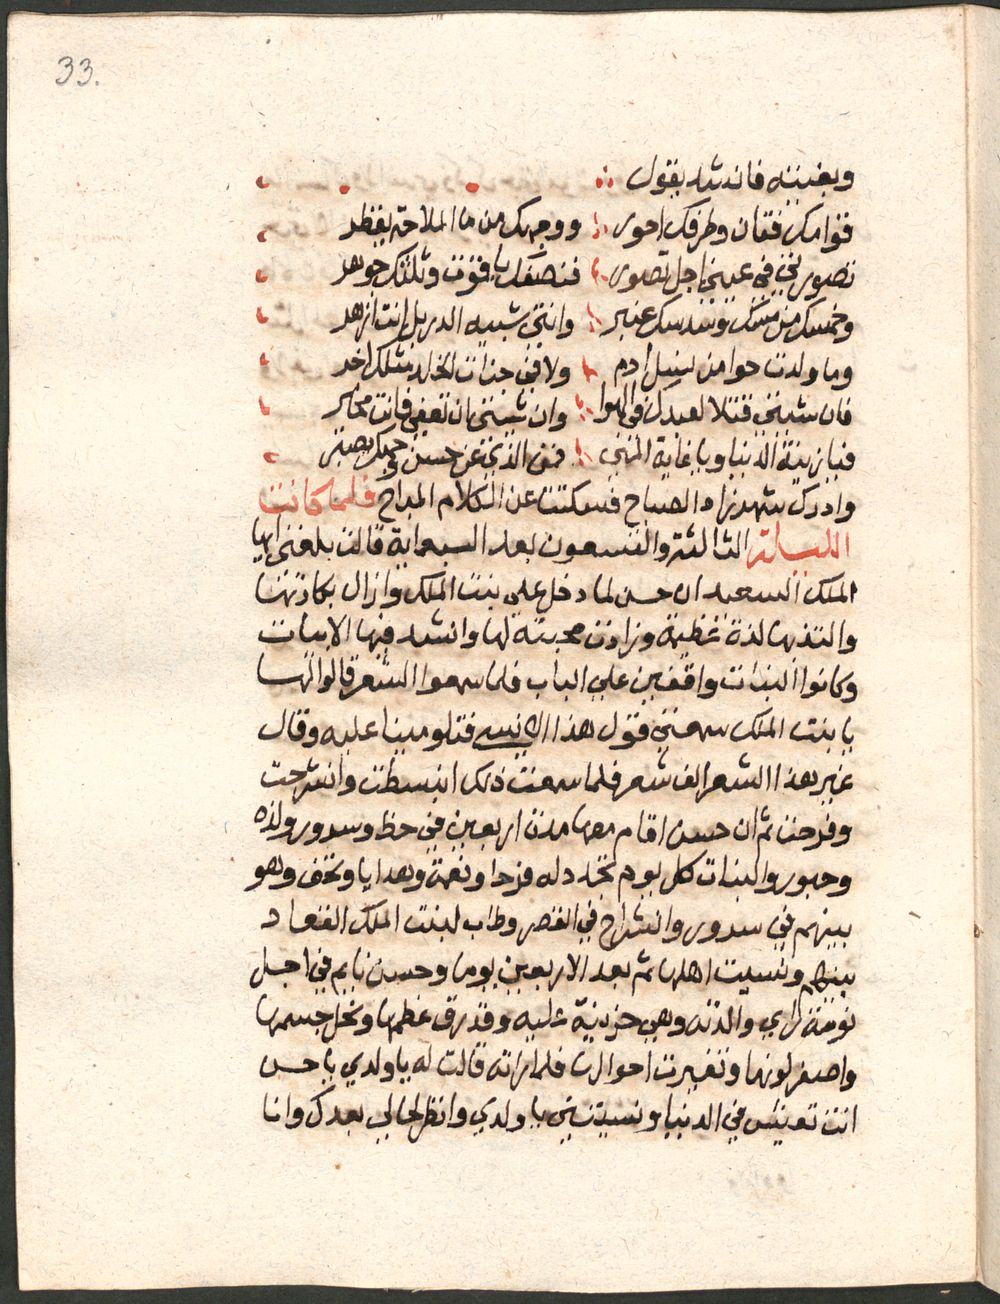 33.
وبغيننه فانشد يقول
قوامك فتان وطرفك احوى ووجهك من ما الملاحة يقطر
تصورتني في عيني اجل تصوري فنصفك ياقوت وثلثك جوهر
وخمسك من مسك وسدسك عنبر وانتي شبيه الدر بل انت ازهر
وما ولدت حوا من نسل ادم ولا في جنات الخلد مثلك اخر
فان شيتي قتلا لعبدك في الهوا وان شيتي ان تعفي فانت مخير
فيا زينة الدنيا ويا غاية المنى فمن الذي عن حسن وجهك يصبر
وادرك شهرزاد الصباح فسكتت عن الكلام المباح فلما كانت
الليلة الثالثة والتسعون بعد السبعماية قالت بلغني ايها
الملك السعيد ان حسن لما دخل على بنت الملك وازال بكارتها
والتذ بها لذة عظيمة وزادت محبته لها وانشد فيها الابيات
وكانوا البنات واقفين علي الباب فلما سمعوا الشعر قالوا لها
يا بنت الملك سمعتي قول هذا الانسي فتلومينا عليه وقال
غير هذا الشعر الف شعر فلما سمعت ذلك انبسطت وانشرحت
وفرحت ثم ان حسن اقام معها مدت اربعين في حظ وسرور ولذه
وحبور والبنات كل يوم تجدد له فرحا ونعمة وهدايا وتحف وهو
بينهم في سرور وانشراح في القصر وطاب لبنت الملك القعاد
بينهم ونسيت اهلها ثم بعد الاربعين يوما وحسن نايم في اجل
نومة راي والدته وهي حزينة عليه وقد رق عظمها ونحل جسمها
واصفر لونها وتغيرت احوالها فلما راته قالت له يا ولدي يا حسن
انت تعيش في الدنيا ونسيتني يا ولدي وانظر لحالي بعدك وانا